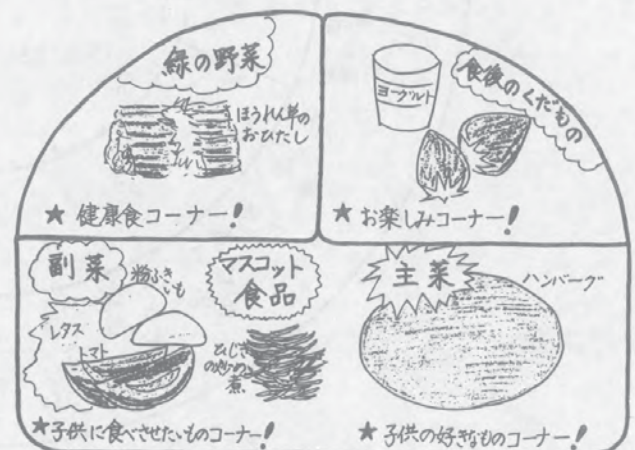 緑の野菜
ほうれん草の
おひたし
★ 健康食コーナー!
食後のくだもの
ヨーグルト
★ お楽しみコーナー!
副菜
粉ふき
いも
レタス
トマト
マスコット
食品
ひじき
煮
★子供に食べさせたいものコーナー!
主菜
ハンバーグ
★ 子供の好きなものコーナー!